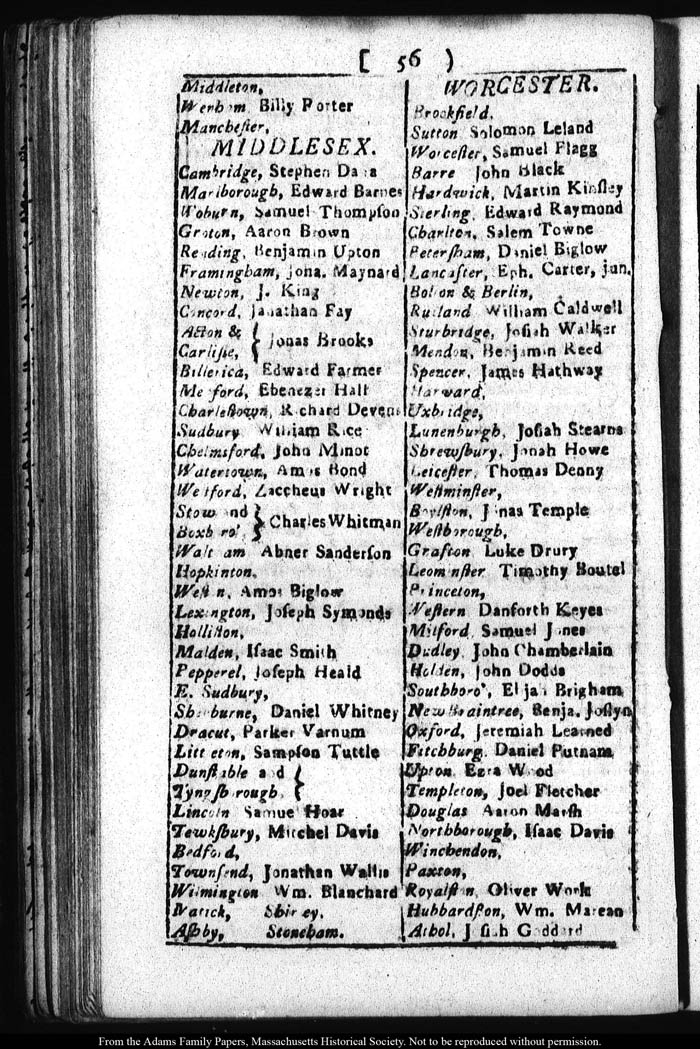 [ 56 )
Middleton,
Wenham Billy Porter
Mancheſter,
MIDDLESEX.
Cambridge, Stephen Dana
Marlborough, Edward Barnes
Woburn, Samuel Thompſon
Groton, Aaron Brown
Reading, Benjamin Upton
Framingham, Jona. Maynard
Newton, J. King
Concord, Jonathan Fay
Acton &
Carliſle, } Jonas Brooks
Billerica, Edward Farmer
Medford, Ebenezer Hall
Charleſtown, Richard Devens
Sudbury William Rice
Chelmsford, John Minot
Watertown, Amos Bond
Weſtford, Zaccheus Wright
Stow and
Boxboro', } Charles Whitman
Waltham Abner Sanderſon
Hopkinton,
Weſton, Amos Biglow
Lexington, Joſeph Symonds
Holliſton,
Malden, Iſaac Smith
Pepperel, Joſeph Heald
E. Sudbury,
Sherburne, Daniel Whitney
Dracut, Parker Varnum
Littleton, Sampſon Tuttle
Dunſtable and {
Tyngſborough,
Lincoln Samuel Hoar
Tewkſbury, Mitchel Davis
Bedford,
Townſend, Jonathan Wallis
Wilmington Wm. Blanchard
Natick, Shirley,
Aſhby, Stoneham.
WORCESTER.
Brookfield,
Sutton Solomon Leland
Worceſter, Samuel Flagg
Barre John Black
Hardwick, Martin Kinſley
Sterling, Edward Raymond
Charlton, Salem Towne
Peterſham, Daniel Biglow
Lancaſter, Eph. Carter, jun.
Bolton & Berlin,
Rutland William Caldwell
Sturbridge, Joſiah Walker
Mendon, Benjamin Reed
Spencer, James Hathway
Harward,
Uxbridge,
Lunenburgh, Joſiah Stearns
Shrewſbury, Jonah Howe
Leiceſter, Thomas Denny
Weſtminſter,
Boylſton, Jonas Temple
Weſtborough,
Grafton Luke Drury
Leominſter Timothy Boutel
Princeton,
Weſtern Danforth Keyes
Milford, Samuel Jones
Dudley, John Chamberlain
Holden, John Dodds
Southboro', Elijah Brigham
New Braintree, Benja. Joſlyn
Oxford, Jeremiah Learned
Fitchburg, Daniel Putnam
Upton Ezra Wood
Templeton, Joel Fletcher
Douglas Aaron Marſh
Northborough, Iſaac Davis
Winchendon,
Paxton,
Royalſton, Oliver Work
Hubbardſton, Wm. Marean
Athol, Joſiah Goddard
From the Adams Family Papers, Massachusetts Historical Society. Not to be reproduced without permission.